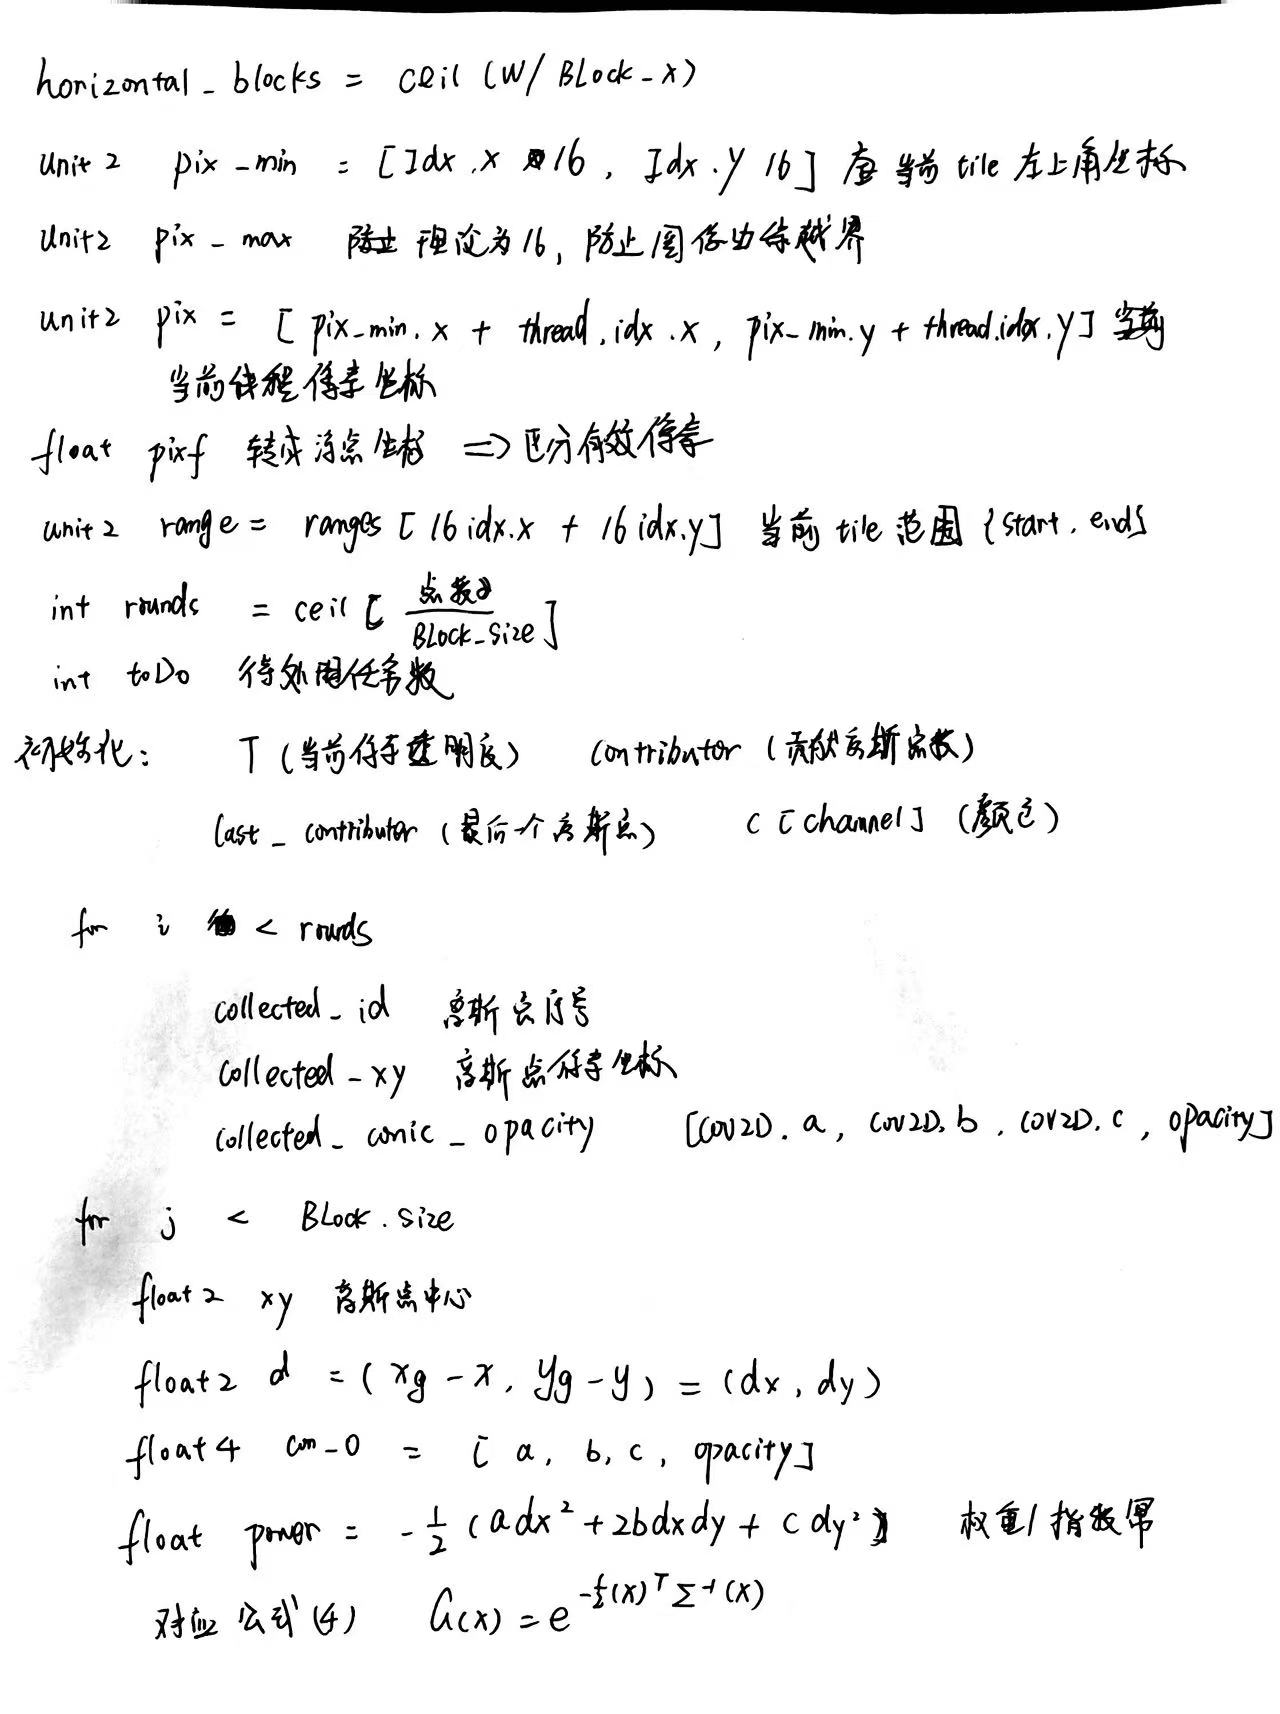 horizontal_blocks = ceil (W/BLock_x)
unit2 pix_min = [Idx.x 16, Idx.y 16] 当前 tile 左上角坐标
Unit2 pix_max 理论为16, 防止图像边缘越界
unit2 pix = [pix_min.x + thread.idx.x, pix_min.y + thread.idx.y] 当前
当前线程像素坐标
float pixf 转成浮点坐标 => 区分有效像素
unit2 range = ranges [16 idx.x + 16 idx.y] 当前 tile 范围 {start, end}
int rounds = ceil [点数 / BLock_size]
int toDo 待处理任务数
初始化: T (当前像素透明度) contributor (贡献高斯点数)
last_contributor (最后一个高斯点) C [channel] (颜色)
for i < rounds
collected_id 高斯点序号
collected_xy 高斯点像素坐标
collected_conic_opacity [cov2D.a, cov2D.b, cov2D.c, opacity]
for j < BLock.size
float2 xy 高斯点中心
float2 d = (xg - x, yg - y) = (dx, dy)
float4 con_O = [a, b, c, opacity]
float power = -1/2 (adx² + 2bdxdy + cdy²) 权重/指数幂
对应公式(4) G(x) = e^{-1/2(x)^T Σ^{-1}(x)}